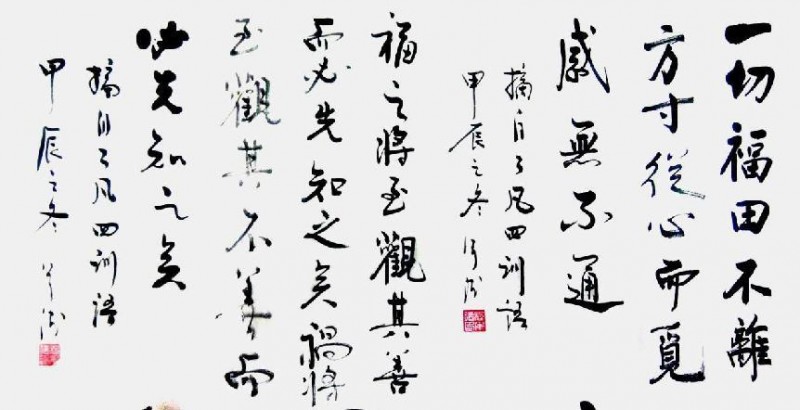 一切福田不離
方寸從心而覓
感無不通
摘自了凡四訓語
甲辰之冬
福之將至觀其善
而必先知之矣禍將
至觀其不善而
必先知之矣
摘自了凡四訓語
甲辰之冬